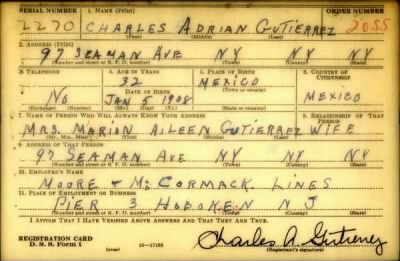 SERIAL NUMBER 1. NAME (Print) ORDER NUMBER
2270 CHARLES ADRIAN GUTIERREZ 2055
(First) (Middle) (Last)
2. ADDRESS (Print)
97 SEAMAN AVE NY NY NY
(Number and street or R. F. D. number) (Town) (County) (State)
3. TELEPHONE 4. AGE IN YEARS 5. PLACE OF BIRTH 6. COUNTRY OF CITIZENSHIP
32 MEXICO
DATE OF BIRTH
No JAN 5 1908 MEXICO
(Exchange) (Number) (Mo.) (Day) (Yr.) (State or county)
7. NAME OF PERSON WHO WILL ALWAYS KNOW YOUR ADDRESS 8. RELATIONSHIP OF THAT PERSON
MRS. MARION AILEEN GUTIERREZ WIFE
(Mr., Mrs., Miss) (First) (Middle) (Last)
9. ADDRESS OF THAT PERSON
97 SEAMAN AVE NY NY NY
(Number and street or R. F. D. number) (Town) (County) (State)
10. EMPLOYER'S NAME
MOORE & McCORMACK LINES
11. PLACE OF EMPLOYMENT OR BUSINESS
PIER 3 HOBOKEN N J
(Number and street or R. F. D. number) (Town) (County) (State)
I AFFIRM THAT I HAVE VERIFIED ABOVE ANSWERS AND THAT THEY ARE TRUE.
REGISTRATION CARD
D. S. S. Form 1 (over) 16—17105 Charles A. Gutierrez
(Registrant's signature)